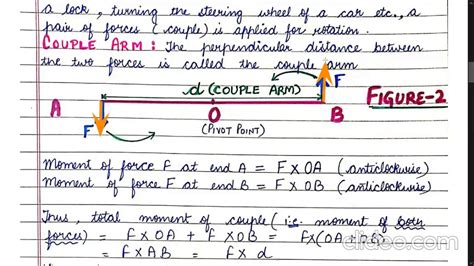 a lock, turning the steering wheel of a car etc., a
pair of forces (couple) is applied for rotation.
COUPLE ARM: The perpendicular distance between
the two forces is called the couple arm
F
d (COUPLE ARM)
FIGURE-2
A O B
F
(PIVOT POINT)
Moment of force F at end A = F X OA (anticlockwise)
Moment of force F at end B = F X OB (anticlockwise)
Thus, total moment of couple (i.e. moment of both
forces) = F X OA + F X OB = F X (OA + OB)
= F X AB = F X d